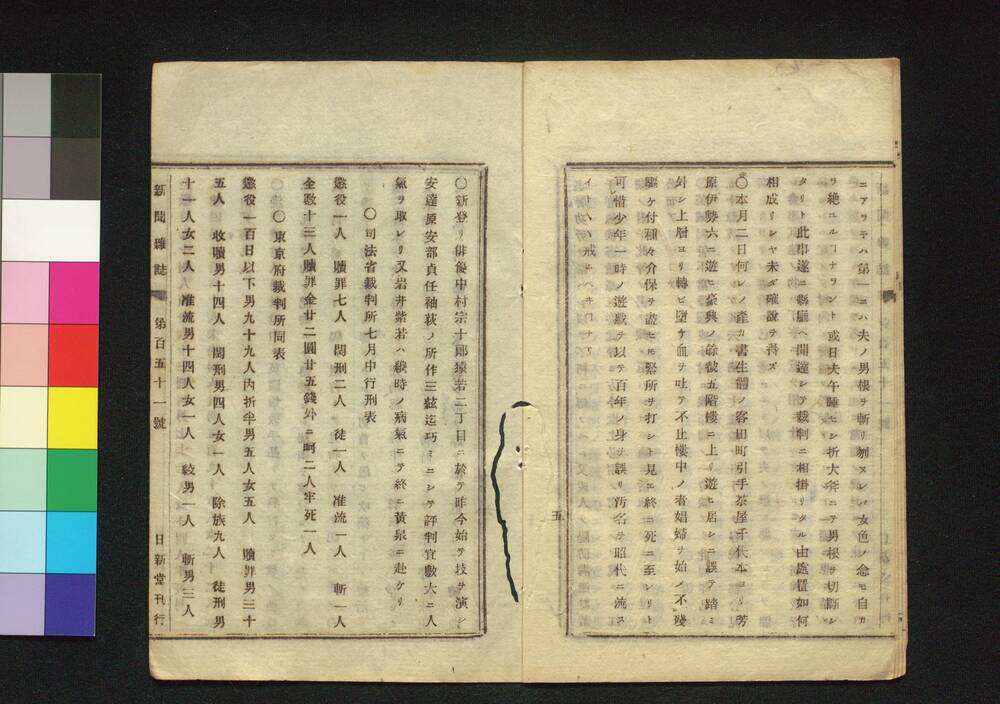 ニアリテハ第一ニハ夫ノ男根ヲ斬リ刎ヌレバ女色ノ念モ自カ
ラ絶ユルコナラント或日夫午睡セシ折大斧ニテ男根ヲ切断シ
タリト此事遂ニ縣廳ヘ聞達シテ裁判ニ相掛リタル由處置如何
相成リシヤ未ダ確説ヲ得ズ
〇本月二日何レノ産カ書生體ノ客田町引手茶屋千代本ヨリ芳
原伊勢六ニ遊ヒ豪興ノ餘該五階樓ニ上リ遊ヒ居シニ誤テ踏ミ
外シ上層ヨリ轉ビ堕ケ血ヲ吐テ不止樓中ノ者娼婦ヲ始ノ不殘
驅ケ付種々介保ヲ盡セ𪜈緊所ヲ打シト見エ終ニ死ニ至レリト
可惜少年一時ノ遊戯ヲ以テ百年ノ身ヲ誤リ汚名ヲ昭代ニ流ス
五
〇新登リ俳優中村宗十郎猿若二丁目ニ於テ昨今始テ技ヲ演シ
安達原安部貞任袖萩ノ所作三絃迄巧ミニシテ評判宜敷大ニ人
氣ヲ取レリ又岩井紫若ハ緩時ノ病氣ニテ終ニ黄泉ニ赴ケリ
〇司法省裁判所七月中行刑表
懲役一人 贖罪七人 閏刑二人 徒一人 准流一人 斬一人
全數十三人贖罪金廿二圓廿五錢外ニ呵二人牢死一人
〇東京府裁判所同表
懲役一百日以下男九十九人内折半男五人女五人 贖罪男三十
五人 收贖男十四人 閏刑男四人女一人 除族九人 徒刑男
十一人女二人 准流男十四人女一人 絞男一人 斬男三人
新聞雜誌 第百五十一號 日新堂刊行